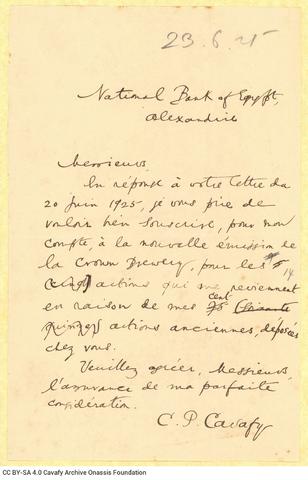 23.6.25
National Bank of Egypt,
Alexandrie
Messieurs,
En réponse à votre lettre du
20 juin 1925, je vous prie de
vouloir bien souscrire, pour mon
compte, à la nouvelle émission de
la Crown Brewery, pour les 14
actions qui me reviennent
en raison de mes cent
actions anciennes, déposées
chez vous.
Veuillez agréer, Messieurs,
l'assurance de ma parfaite
considération.
C. P. Cavafy
CC BY-SA 4.0 Cavafy Archive Onassis Foundation